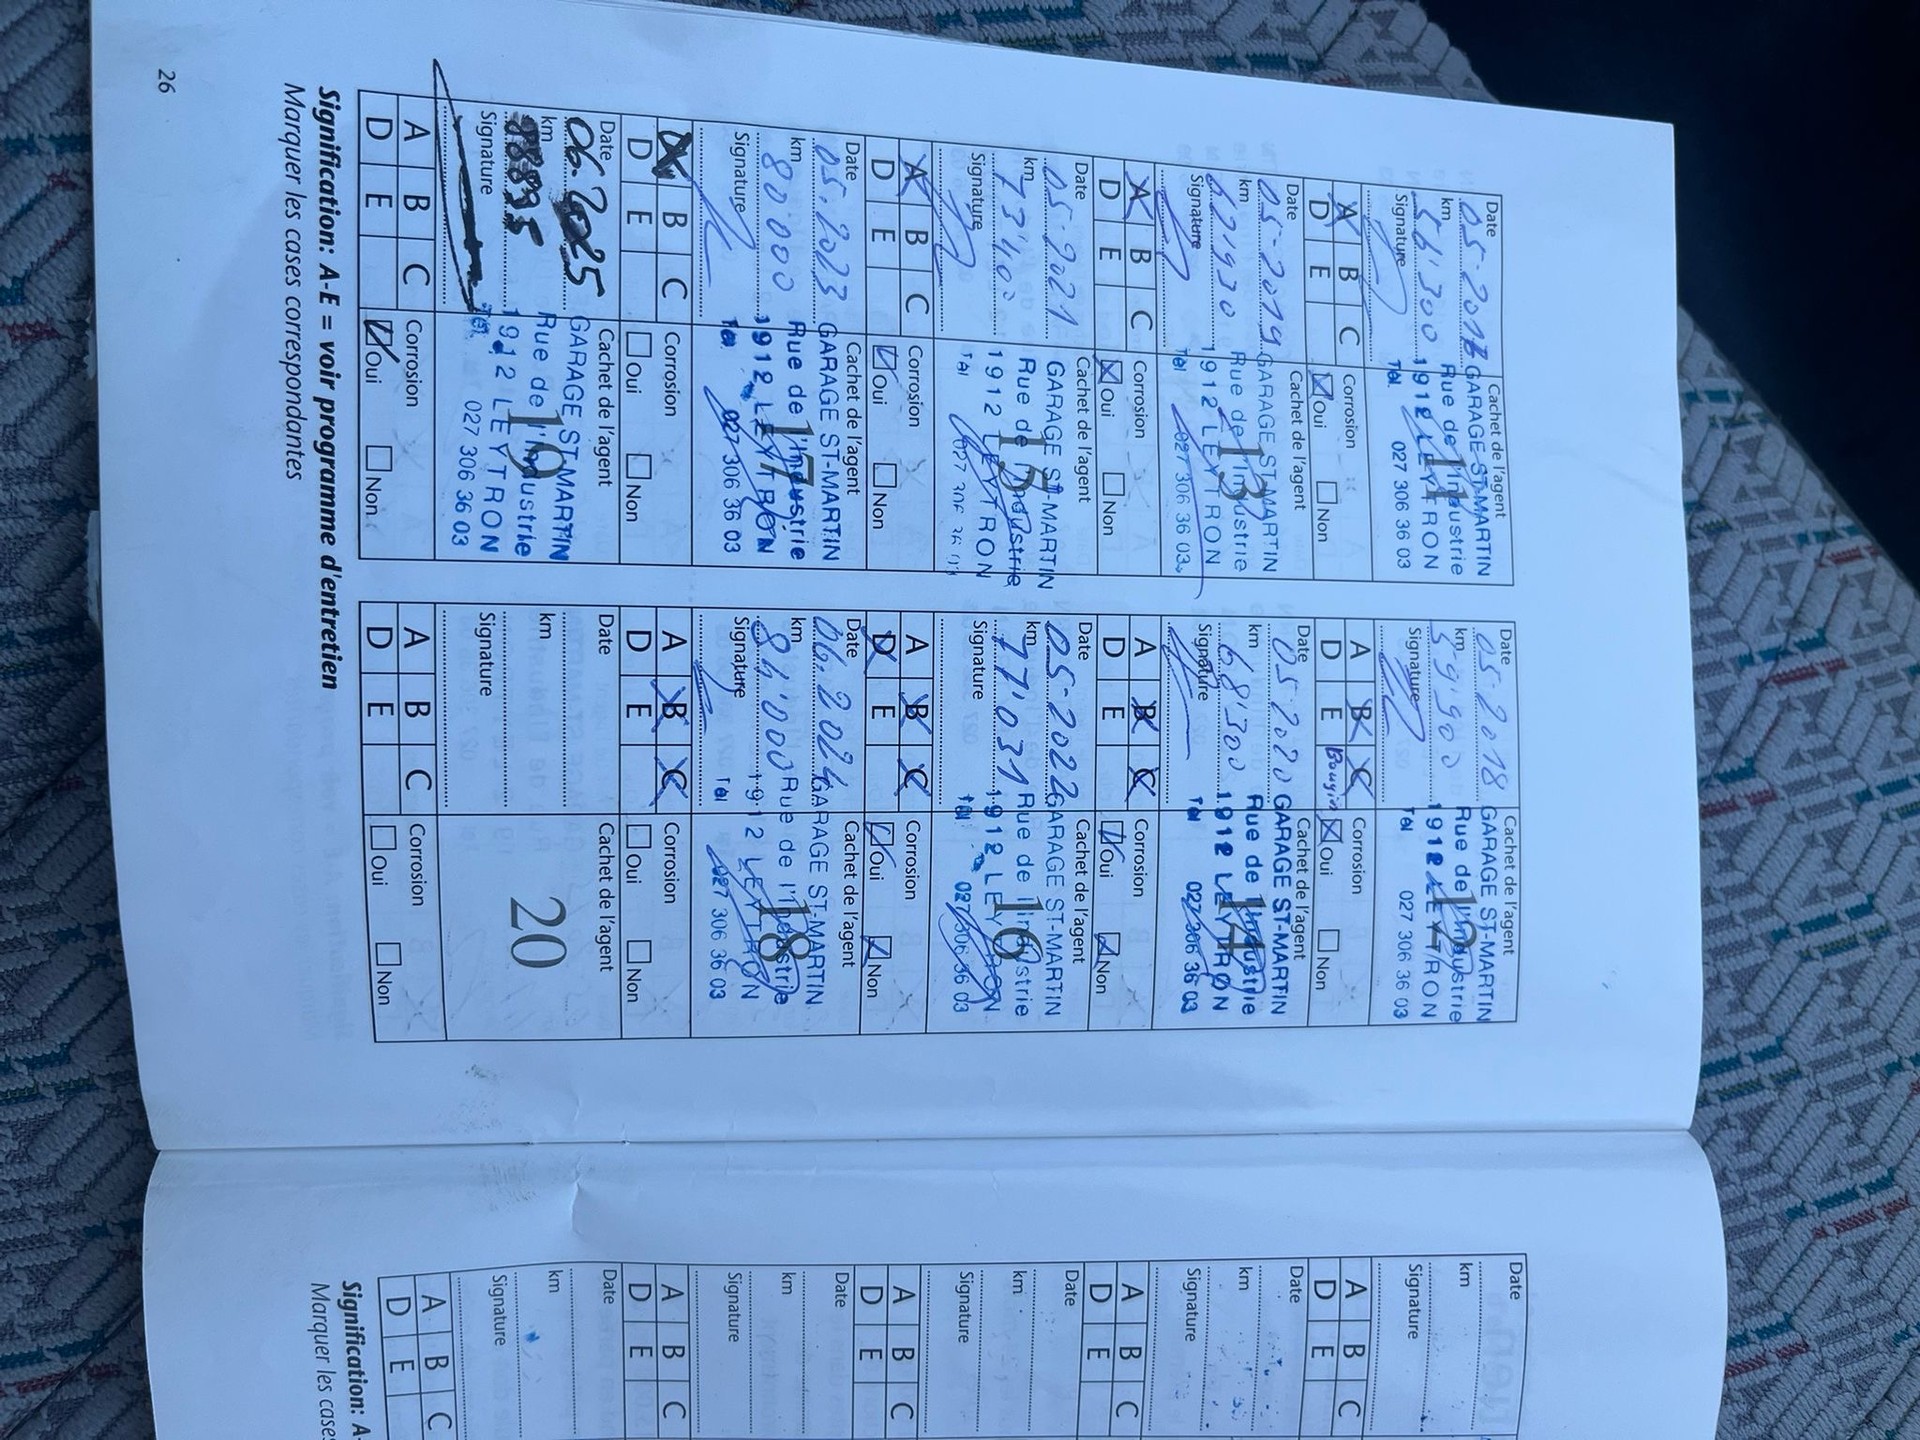 Date
05-2018
km
56'300
Signature
Cachet de l'agent
GARAGE ST-MARTIN
Rue de l'Industrie
11
1912 LEYTRON
Tél. 027 306 36 03
A B C
D E
Corrosion
Oui Non
Date
05-2018
km
59'900
Signature
Cachet de l'agent
GARAGE ST-MARTIN
Rue de l'Industrie
12
1912 LEYTRON
Tél 027 306 36 03
A B C
D E Bougie
Corrosion
Oui Non
Date
05-2019
km
62'930
Signature
Cachet de l'agent
GARAGE ST-MARTIN
Rue de l'Industrie
13
1912 LEYTRON
Tél 027 306 36 03
A B C
D E
Corrosion
Oui Non
Date
05-2020
km
68'300
Signature
Cachet de l'agent
GARAGE ST-MARTIN
Rue de l'Industrie
14
1912 LEYTRON
Tél 027 306 36 03
A B C
D E
Corrosion
Oui Non
Date
05-2021
km
73'400
Signature
Cachet de l'agent
GARAGE ST-MARTIN
Rue de l'Industrie
15
1912 LEYTRON
Tél 027 306 36 03
A B C
D E
Corrosion
Oui Non
Date
05-2022
km
77'031
Signature
Cachet de l'agent
GARAGE ST-MARTIN
Rue de l'Industrie
16
1912 LEYTRON
Tél 027 306 36 03
A B C
D E
Corrosion
Oui Non
Date
05.2023
km
80'000
Signature
Cachet de l'agent
GARAGE ST-MARTIN
Rue de l'Industrie
17
1912 LEYTRON
Tél 027 306 36 03
A B C
D E
Corrosion
Oui Non
Date
06.2024
km
84'000
Signature
Cachet de l'agent
GARAGE ST-MARTIN
Rue de l'Industrie
18
1912 LEYTRON
Tél 027 306 36 03
A B C
D E
Corrosion
Oui Non
Date
06.2025
km
Signature
Cachet de l'agent
GARAGE ST-MARTIN
Rue de l'Industrie
19
1912 LEYTRON
Tél. 027 306 36 03
A B C
D E
Corrosion
Oui Non
Date
km
Signature
Cachet de l'agent
20
A B C
D E
Corrosion
Oui Non
Signification: A-E = voir programme d'entretien
Marquer les cases correspondantes
26
Date
km
Signature
A B C
D E
Date
km
Signature
A B C
D E
Date
km
Signature
A B C
D E
Date
km
Signature
A B C
D E
Date
km
Signature
A B C
D E
Signification: A-
Marquer les cases